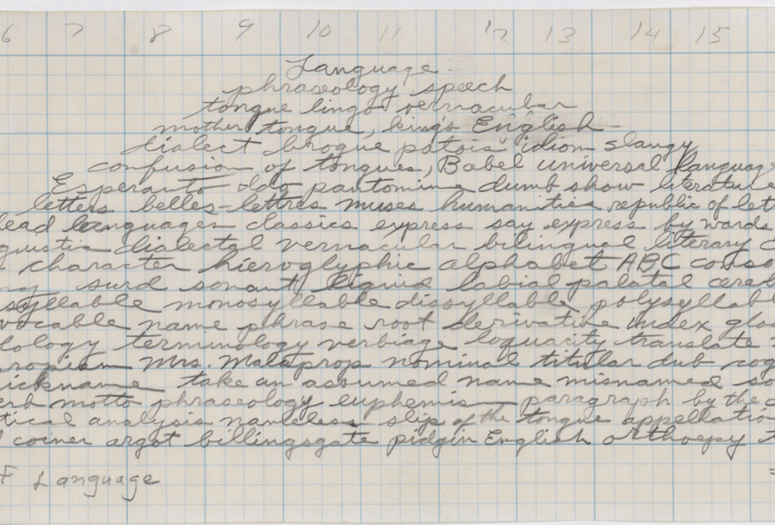 6 7 8 9 10 11 12 13 14 15
Language
phraseology speech
tongue lingo vernacular
mother tongue, king's English
dialect brogue patois idiom slangy
confusion of tongues, Babel universal language
Esperanto Ido pantomime dumb show literature
letters belles-lettres muses humanities republic of let
lead languages classics express say express by words
guistic dialectal vernacular bilingual literary
character hieroglyphic alphabet ABC conso
surd sonant liquid labial palatal cereb
syllable monosyllable dissyllable polysyllab
vocable name phrase root derivative index glo
ology terminology verbiage loquacity translate
Mrs. Malaprop nominal titular dub cog
ickname take an assumed name misnamed so
erb motto phraseology euphemis paragraph by the
tical analysis nameless slip of the tongue appellatio
coiner argot billingsgate pidgin English orthoepy
F Language